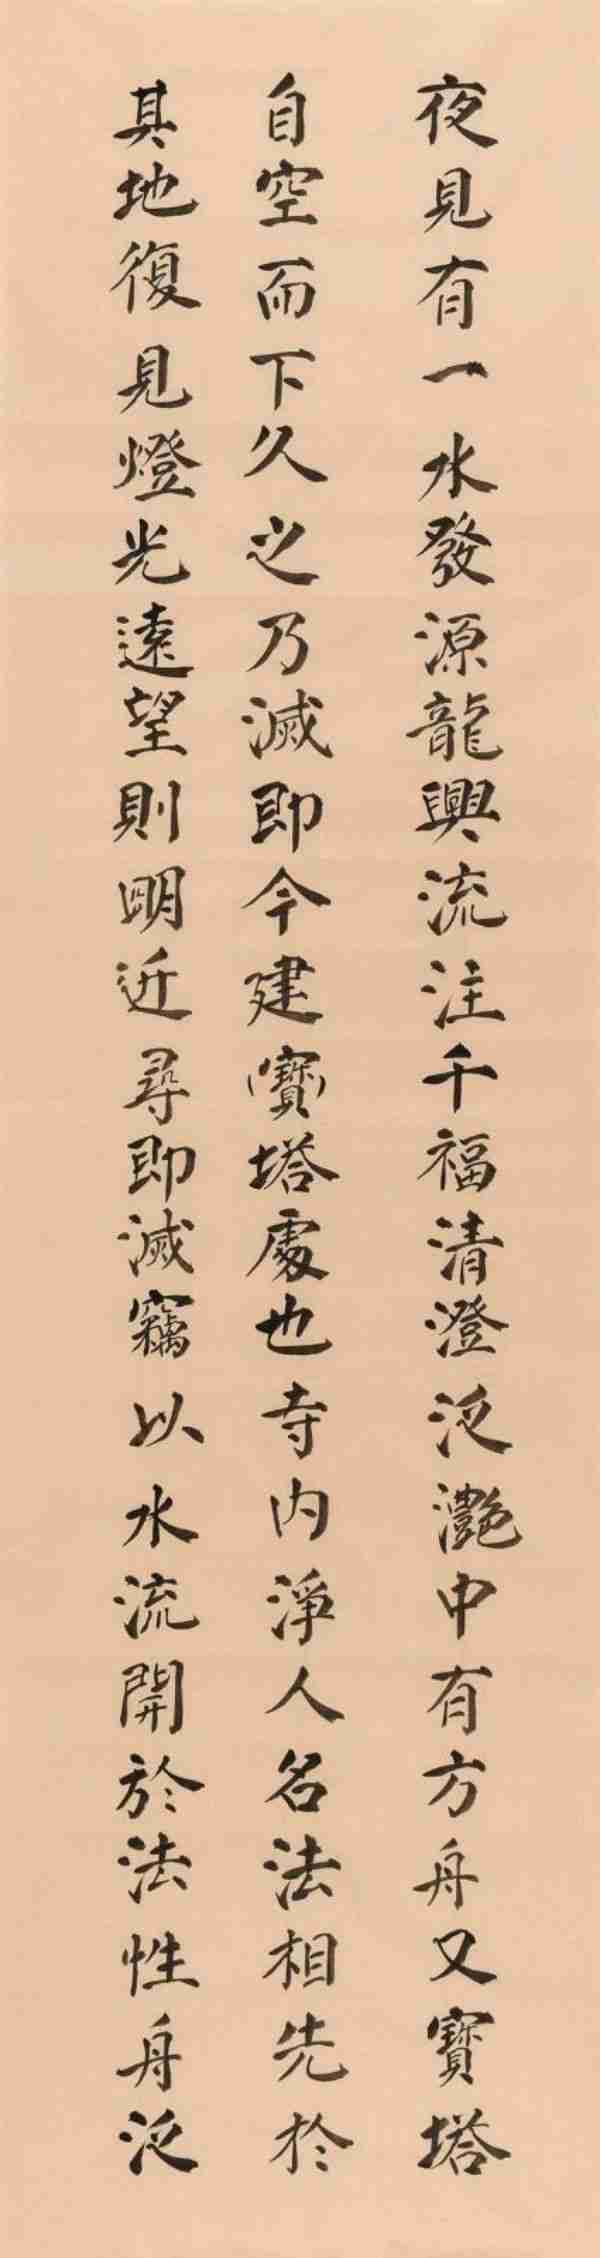 夜見有一水發源龍興流注千福清澄泛灔中有方舟又寶塔
自空而下久之乃滅即今建寶塔處也寺內淨人名法相先於
其地復見燈光遠望則明近尋即滅竊以水流開於法性舟泛